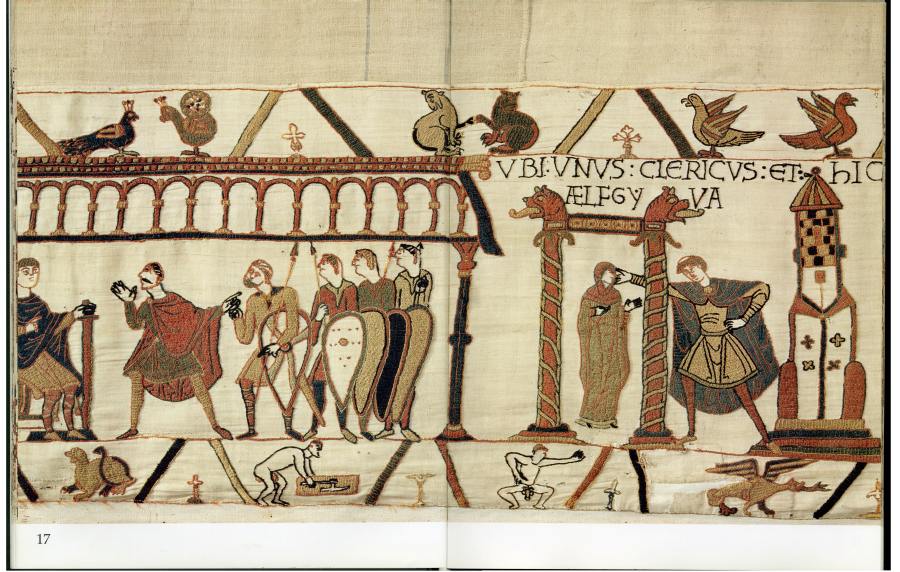 VBI:VNVS:CLERICVS:ET:- hIC
ÆLFGYVA
17